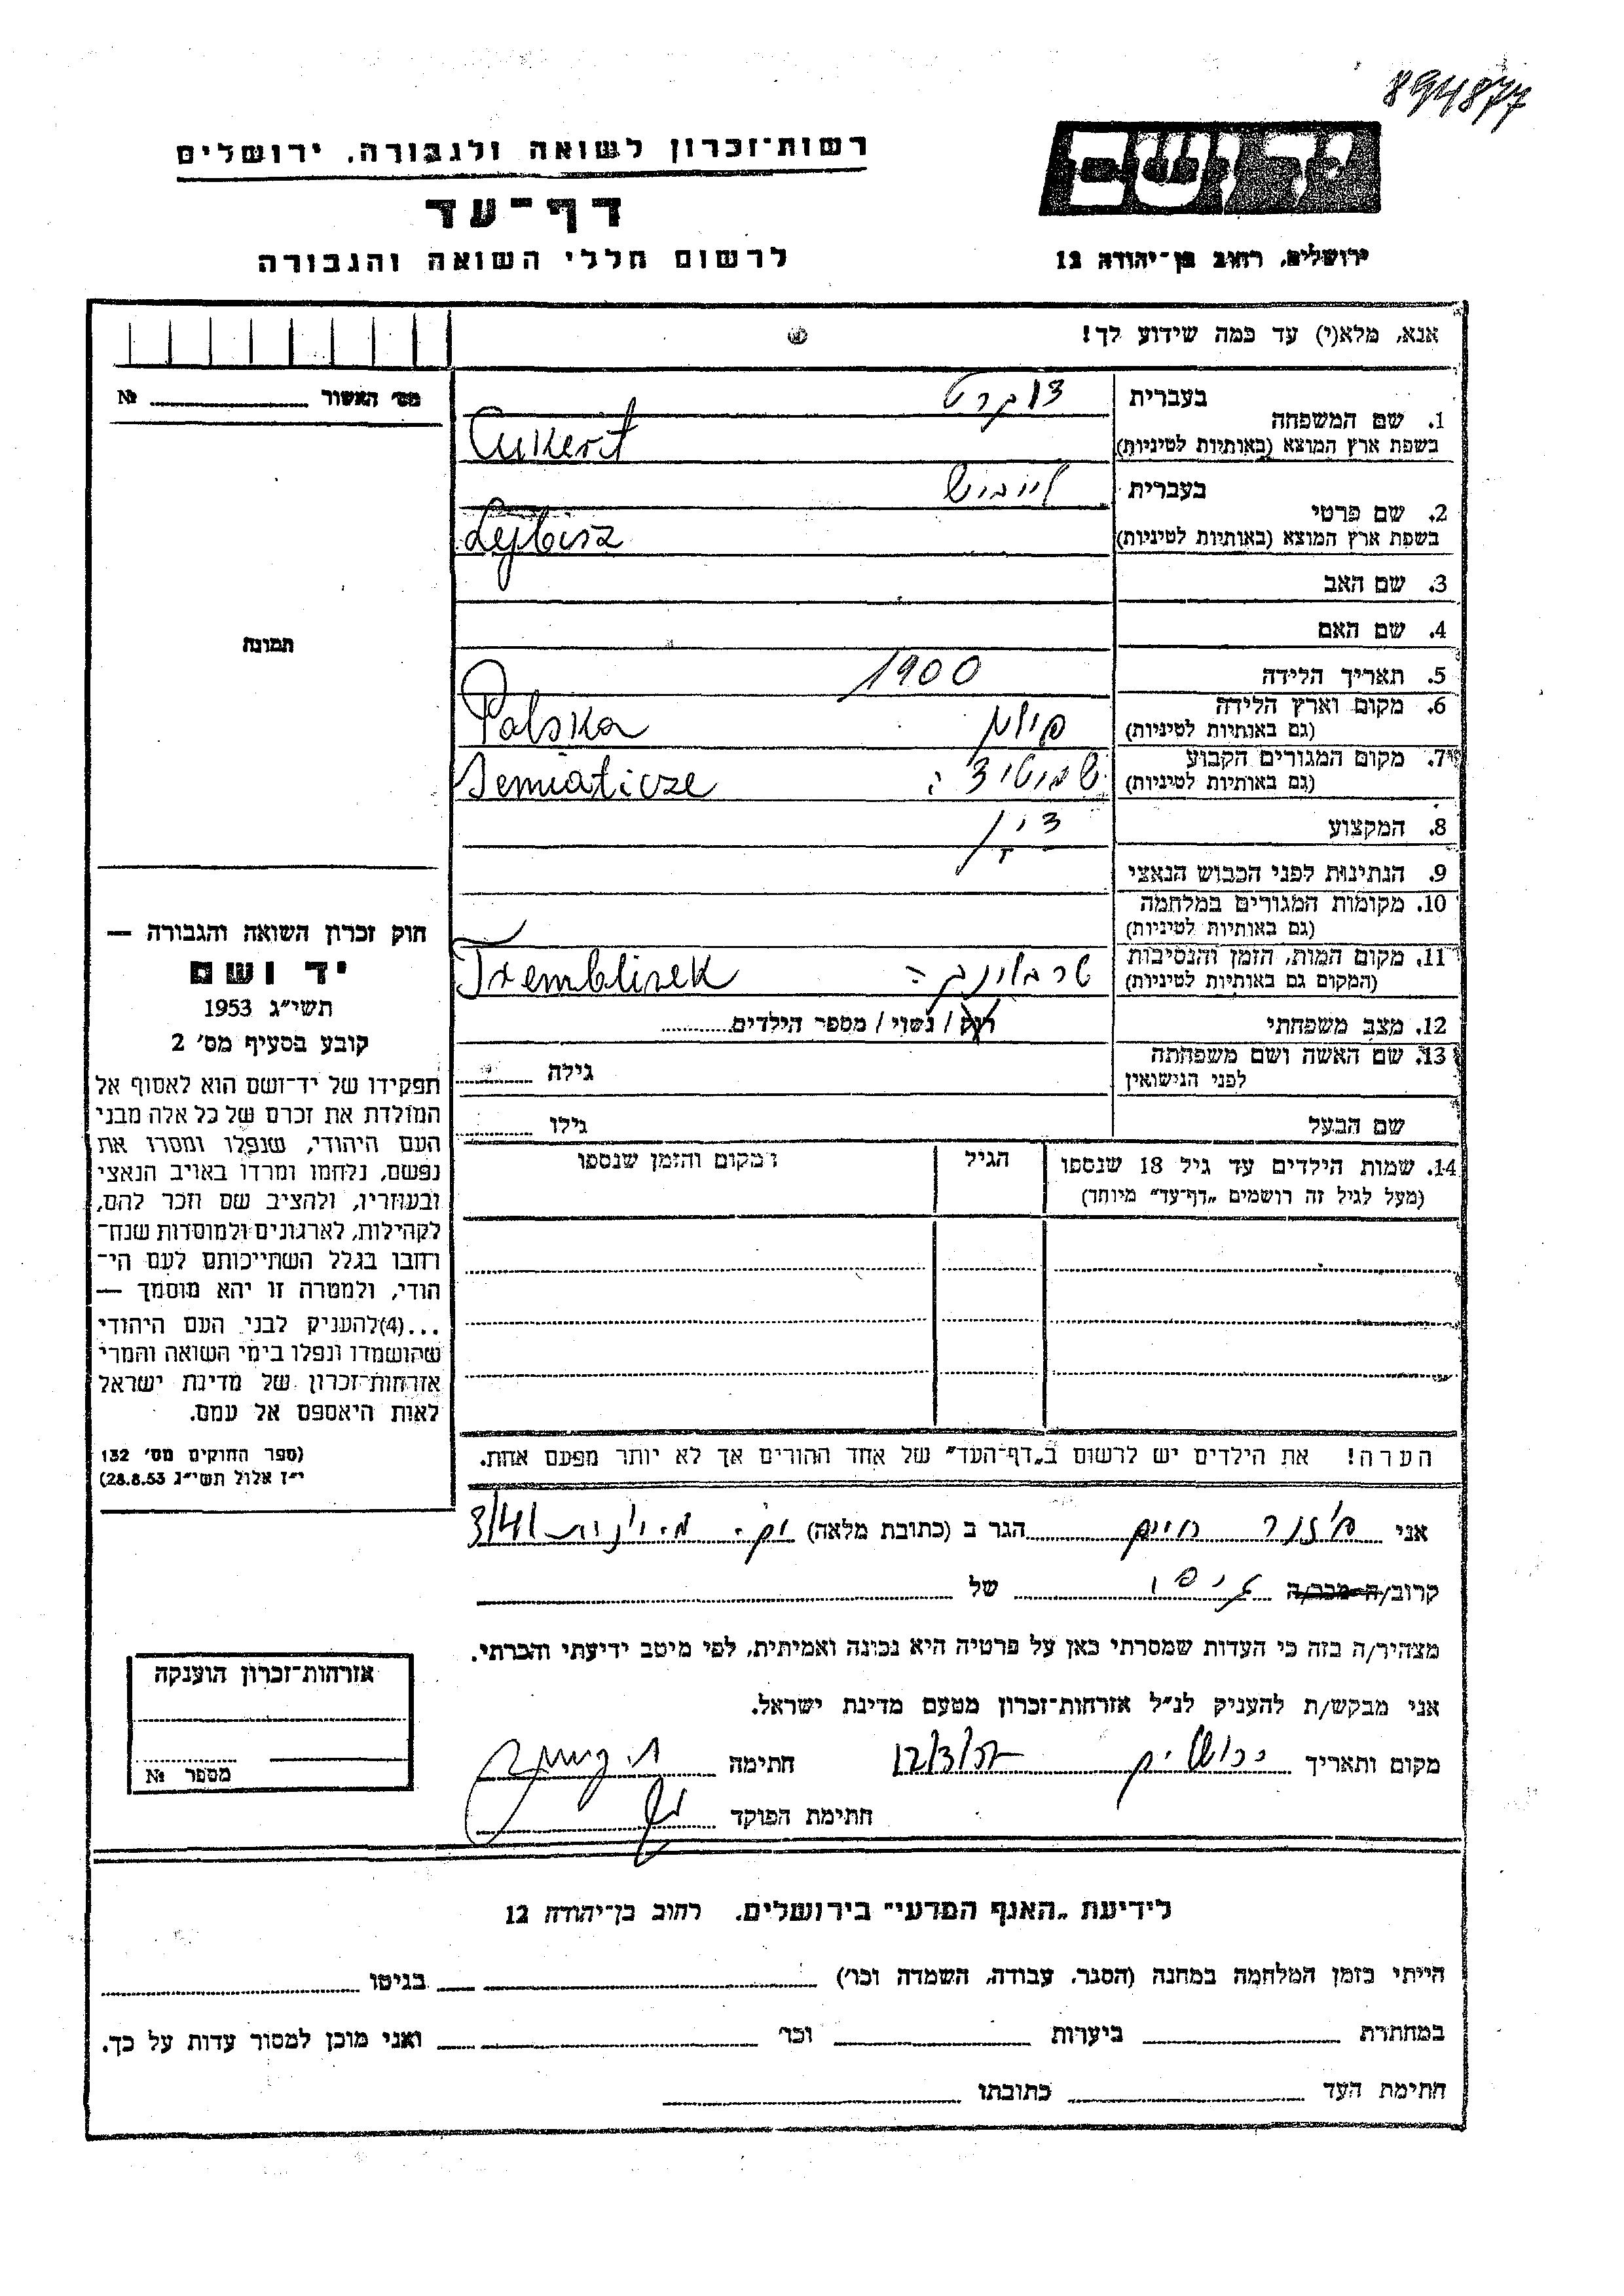 894877
יד ושם
ירושלים, רחוב בן־יהודה 12
רשות־זכרון לשואה ולגבורה, ירושלים
דף־עד
לרשום חללי השואה והגבורה
אנא, מלא(י) עד כמה שידוע לך!
מס׳ האשור № ........
1. שם המשפחה
בעברית צוקרט
בשפת ארץ המוצא (באותיות לטיניות) Cukert
2. שם פרטי
בעברית לייביש
בשפת ארץ המוצא (באותיות לטיניות) Lejbisz
3. שם האב
4. שם האם
5. תאריך הלידה 1900
6. מקום וארץ הלידה
(גם באותיות לטיניות) פולין Polska
7. מקום המגורים הקבוע
(גם באותיות לטיניות) Semiaticze
8. המקצוע
9. הנתינות לפני הכבוש הנאצי
10. מקומות המגורים במלחמה
(גם באותיות לטיניות)
11. מקום המות, הזמן והנסיבות
(המקום גם באותיות לטיניות) טרבלינקה Tremblinek
12. מצב משפחתי רווק / נשוי / מספר הילדים........
13. שם האשה ושם משפחתה
לפני הנישואין גילה ........
שם הבעל גילו ........
14. שמות הילדים עד גיל 18 שנספו
(מעל לגיל זה רושמים „דף־עד״ מיוחד)
הגיל
המקום והזמן שנספו
הערה! את הילדים יש לרשום ב„דף־העד״ של אחד ההורים אך לא יותר מפעם אחת.
תמונה
חוק זכרון השואה והגבורה —
יד ושם
תשי״ג 1953
קובע בסעיף מס׳ 2
תפקידו של יד־ושם הוא לאסוף אל
המולדת את זכרם של כל אלה מבני
העם היהודי, שנפלו ומסרו את
נפשם, נלחמו ומרדו באויב הנאצי
ובעוזריו, ולהציב שם וזכר להם,
לקהילות, לארגונים ולמוסדות שנח־
רחבו בגלל השתייכותם לעם הי־
הודי, ולמטרה זו יהא מוסמך —
...(4)להעניק לבני העם היהודי
שהושמדו ונפלו בימי השואה והמרי
אזרחות־זכרון של מדינת ישראל
לאות היאספם אל עמם.
(ספר החוקים מס׳ 132
י״ז אלול תשי״ג 28.8.53)
אני חיים הגר ב (כתובת מלאה) 3/41
קרוב/ה מכר/ה גיסו של
מצהיר/ה בזה כי העדות שמסרתי כאן על פרטיה היא נכונה ואמיתית, לפי מיטב ידיעתי והכרתי.
אני מבקש/ת להעניק לנ״ל אזרחות־זכרון מטעם מדינת ישראל.
מקום ותאריך ירושלים 12/3/57 חתימה
חתימת הפוקד
אזרחות־זכרון הוענקה
מספר №
לידיעת „האגף המדעי״ בירושלים, רחוב בן־יהודה 12
הייתי בזמן המלחמה במחנה (הסגר, עבודה, השמדה וכו׳) בגיטו
במחתרת ביערות וכו׳ ואני מוכן למסור עדות על כך.
חתימת העד כתובתו